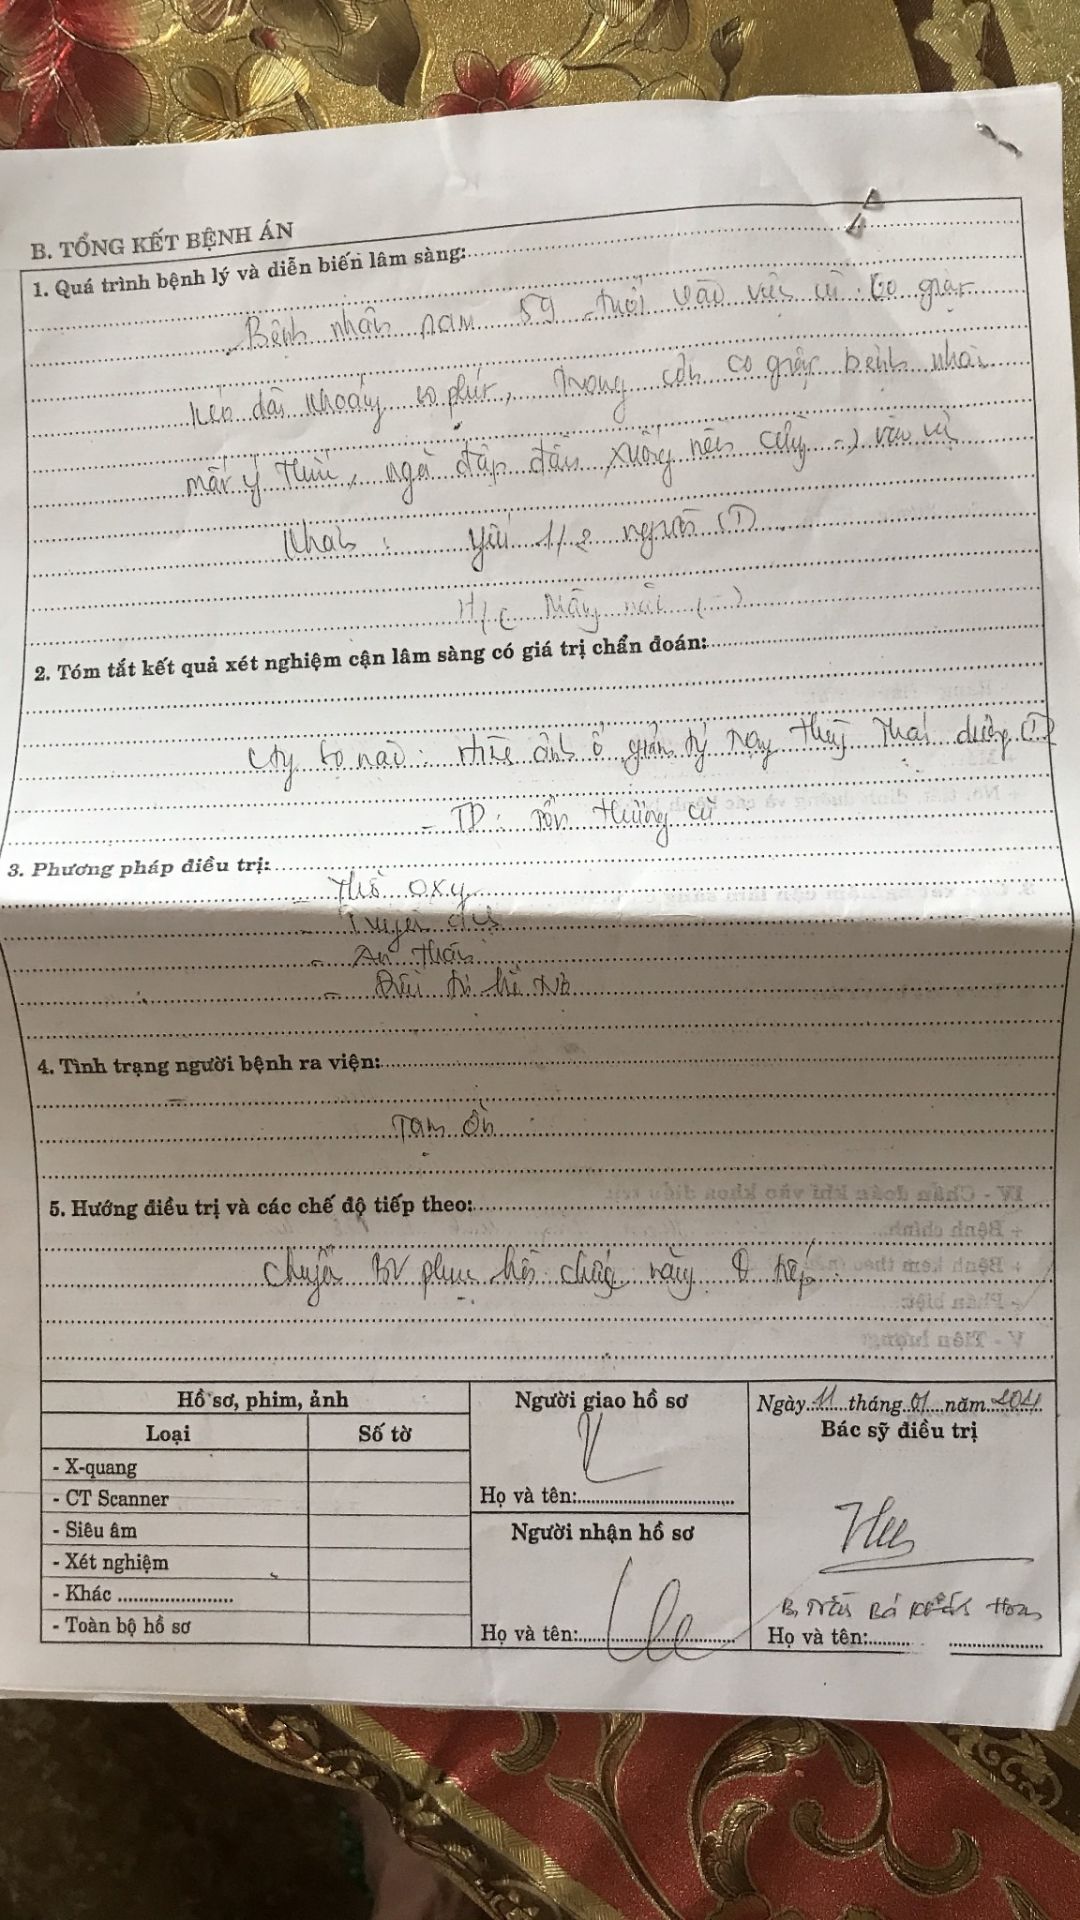 B. TỔNG KẾT BỆNH ÁN
1. Quá trình bệnh lý và diễn biến lâm sàng:
Bệnh nhân nam 59 tuổi vào viện vì co giật
kéo dài khoảng phút, trong cơn co giật bệnh nhân
mất ý thức, ngã đập đầu xuống nền cứng -> vào viện
Khám: yếu 1/2 người (T)
H/c màng não (-)
2. Tóm tắt kết quả xét nghiệm cận lâm sàng có giá trị chẩn đoán:
sọ não: Hình ảnh ổ giảm tỷ trọng thùy thái dương (T)
- TD: tổn thương cũ
3. Phương pháp điều trị:
- Thở oxy
- Truyền dịch
- An thần
- Điều trị
4. Tình trạng người bệnh ra viện:
Tạm ổn
5. Hướng điều trị và các chế độ tiếp theo:
chuyển BV phục hồi chức năng tiếp
Hồ sơ, phim, ảnh
Loại Số tờ
- X-quang
- CT Scanner
- Siêu âm
- Xét nghiệm
- Khác
- Toàn bộ hồ sơ
Người giao hồ sơ
Họ và tên:
Người nhận hồ sơ
Họ và tên:
Ngày 11 tháng 01 năm 2021
Bác sỹ điều trị
Bá
Họ và tên: